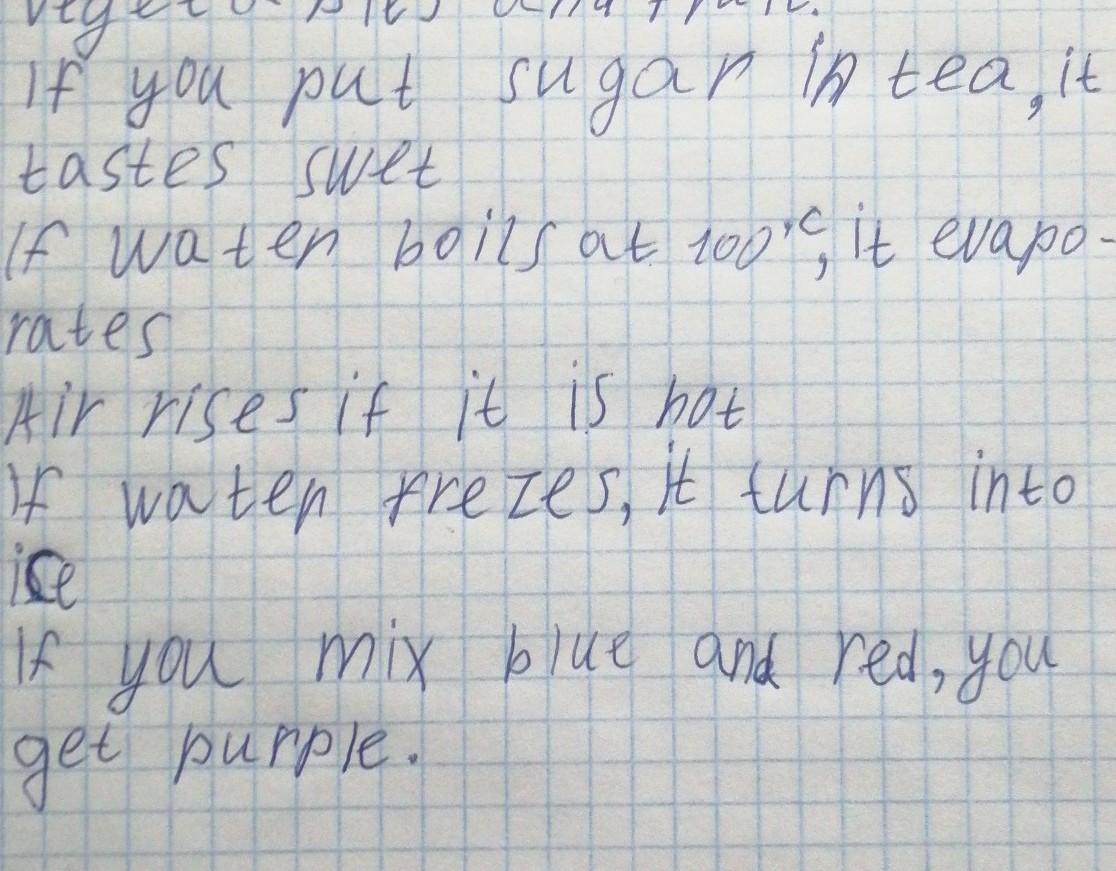 vegetables and fruit.
If you put sugar in tea, it
tastes swet
If water boils at 100°C, it evapo-
rates
Air rises if it is hot
If water frezes, it turns into
ice
If you mix blue and red, you
get purple.